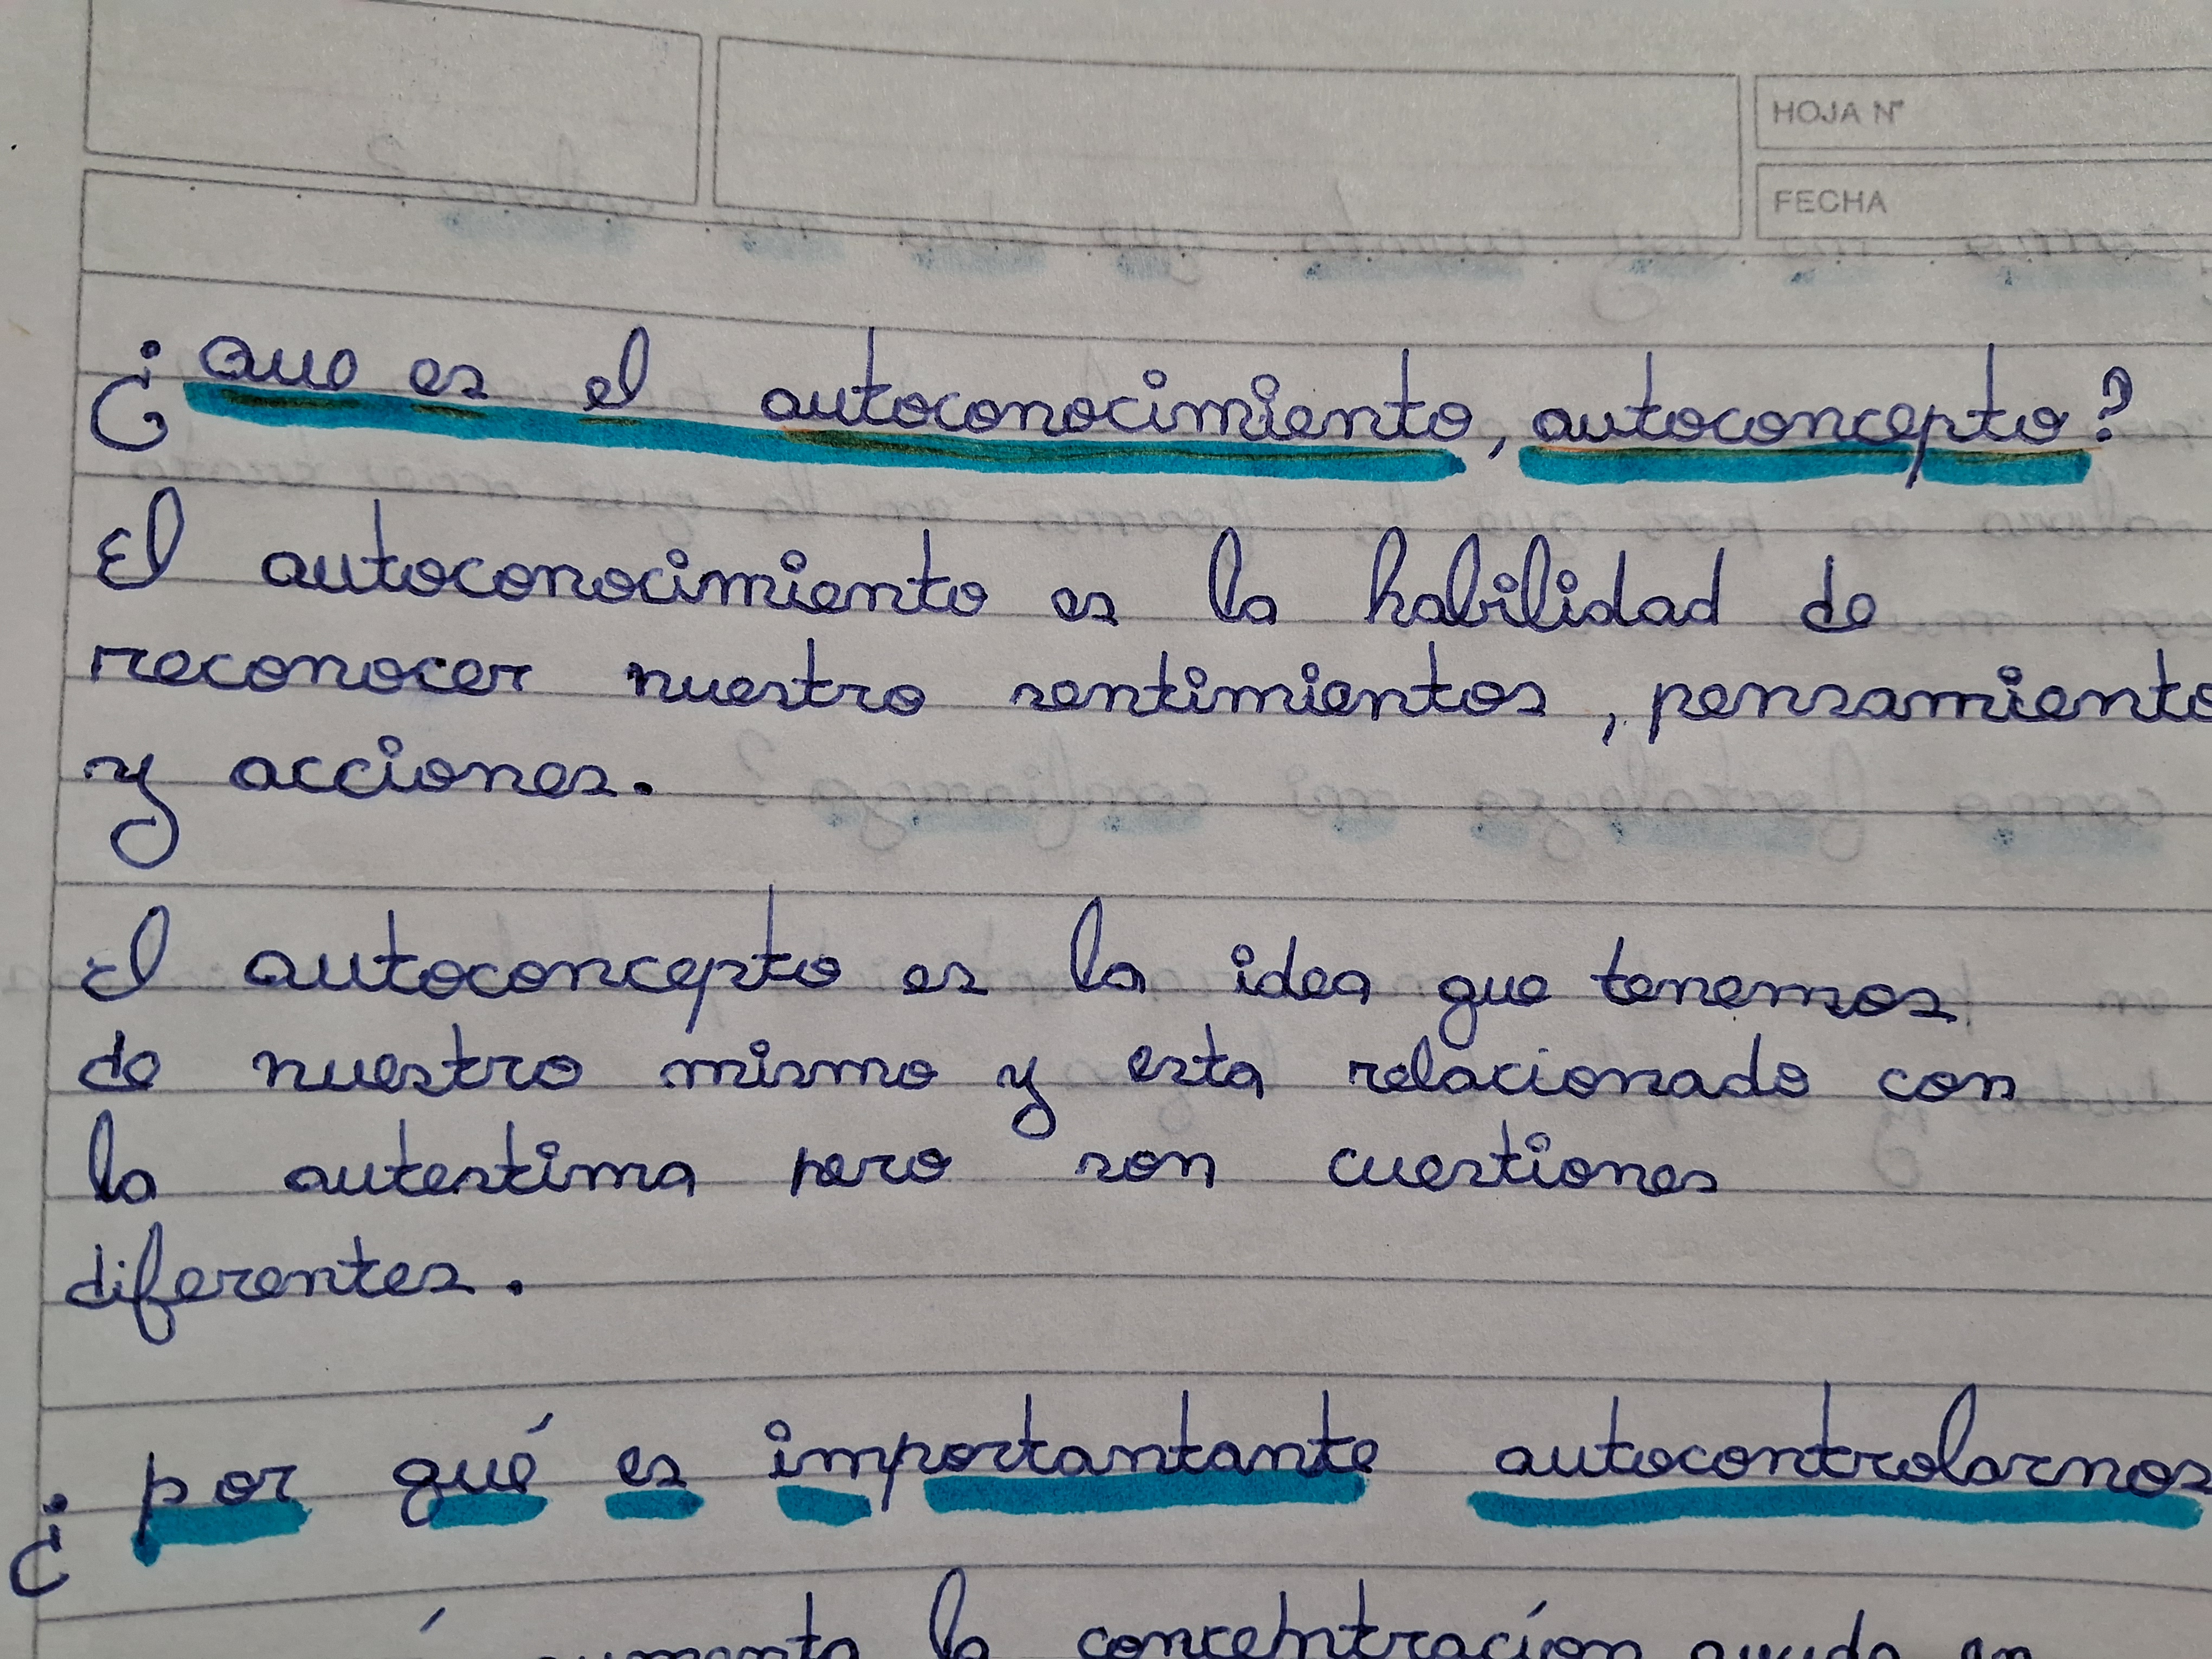 HOJA N°
FECHA
¿ Que es el autoconocimiento, autoconcepto?
El autoconocimiento es la habilidad de
reconocer nuestro sentimientos, pensamiento
y acciones.
El autoconcepto es la idea que tenemos
de nuestro mismo y esta relacionado con
la autestima pero son cuestiones
diferentes.
¿ por qué es importantante autocontrolarnos
aumenta la concentración ayuda en